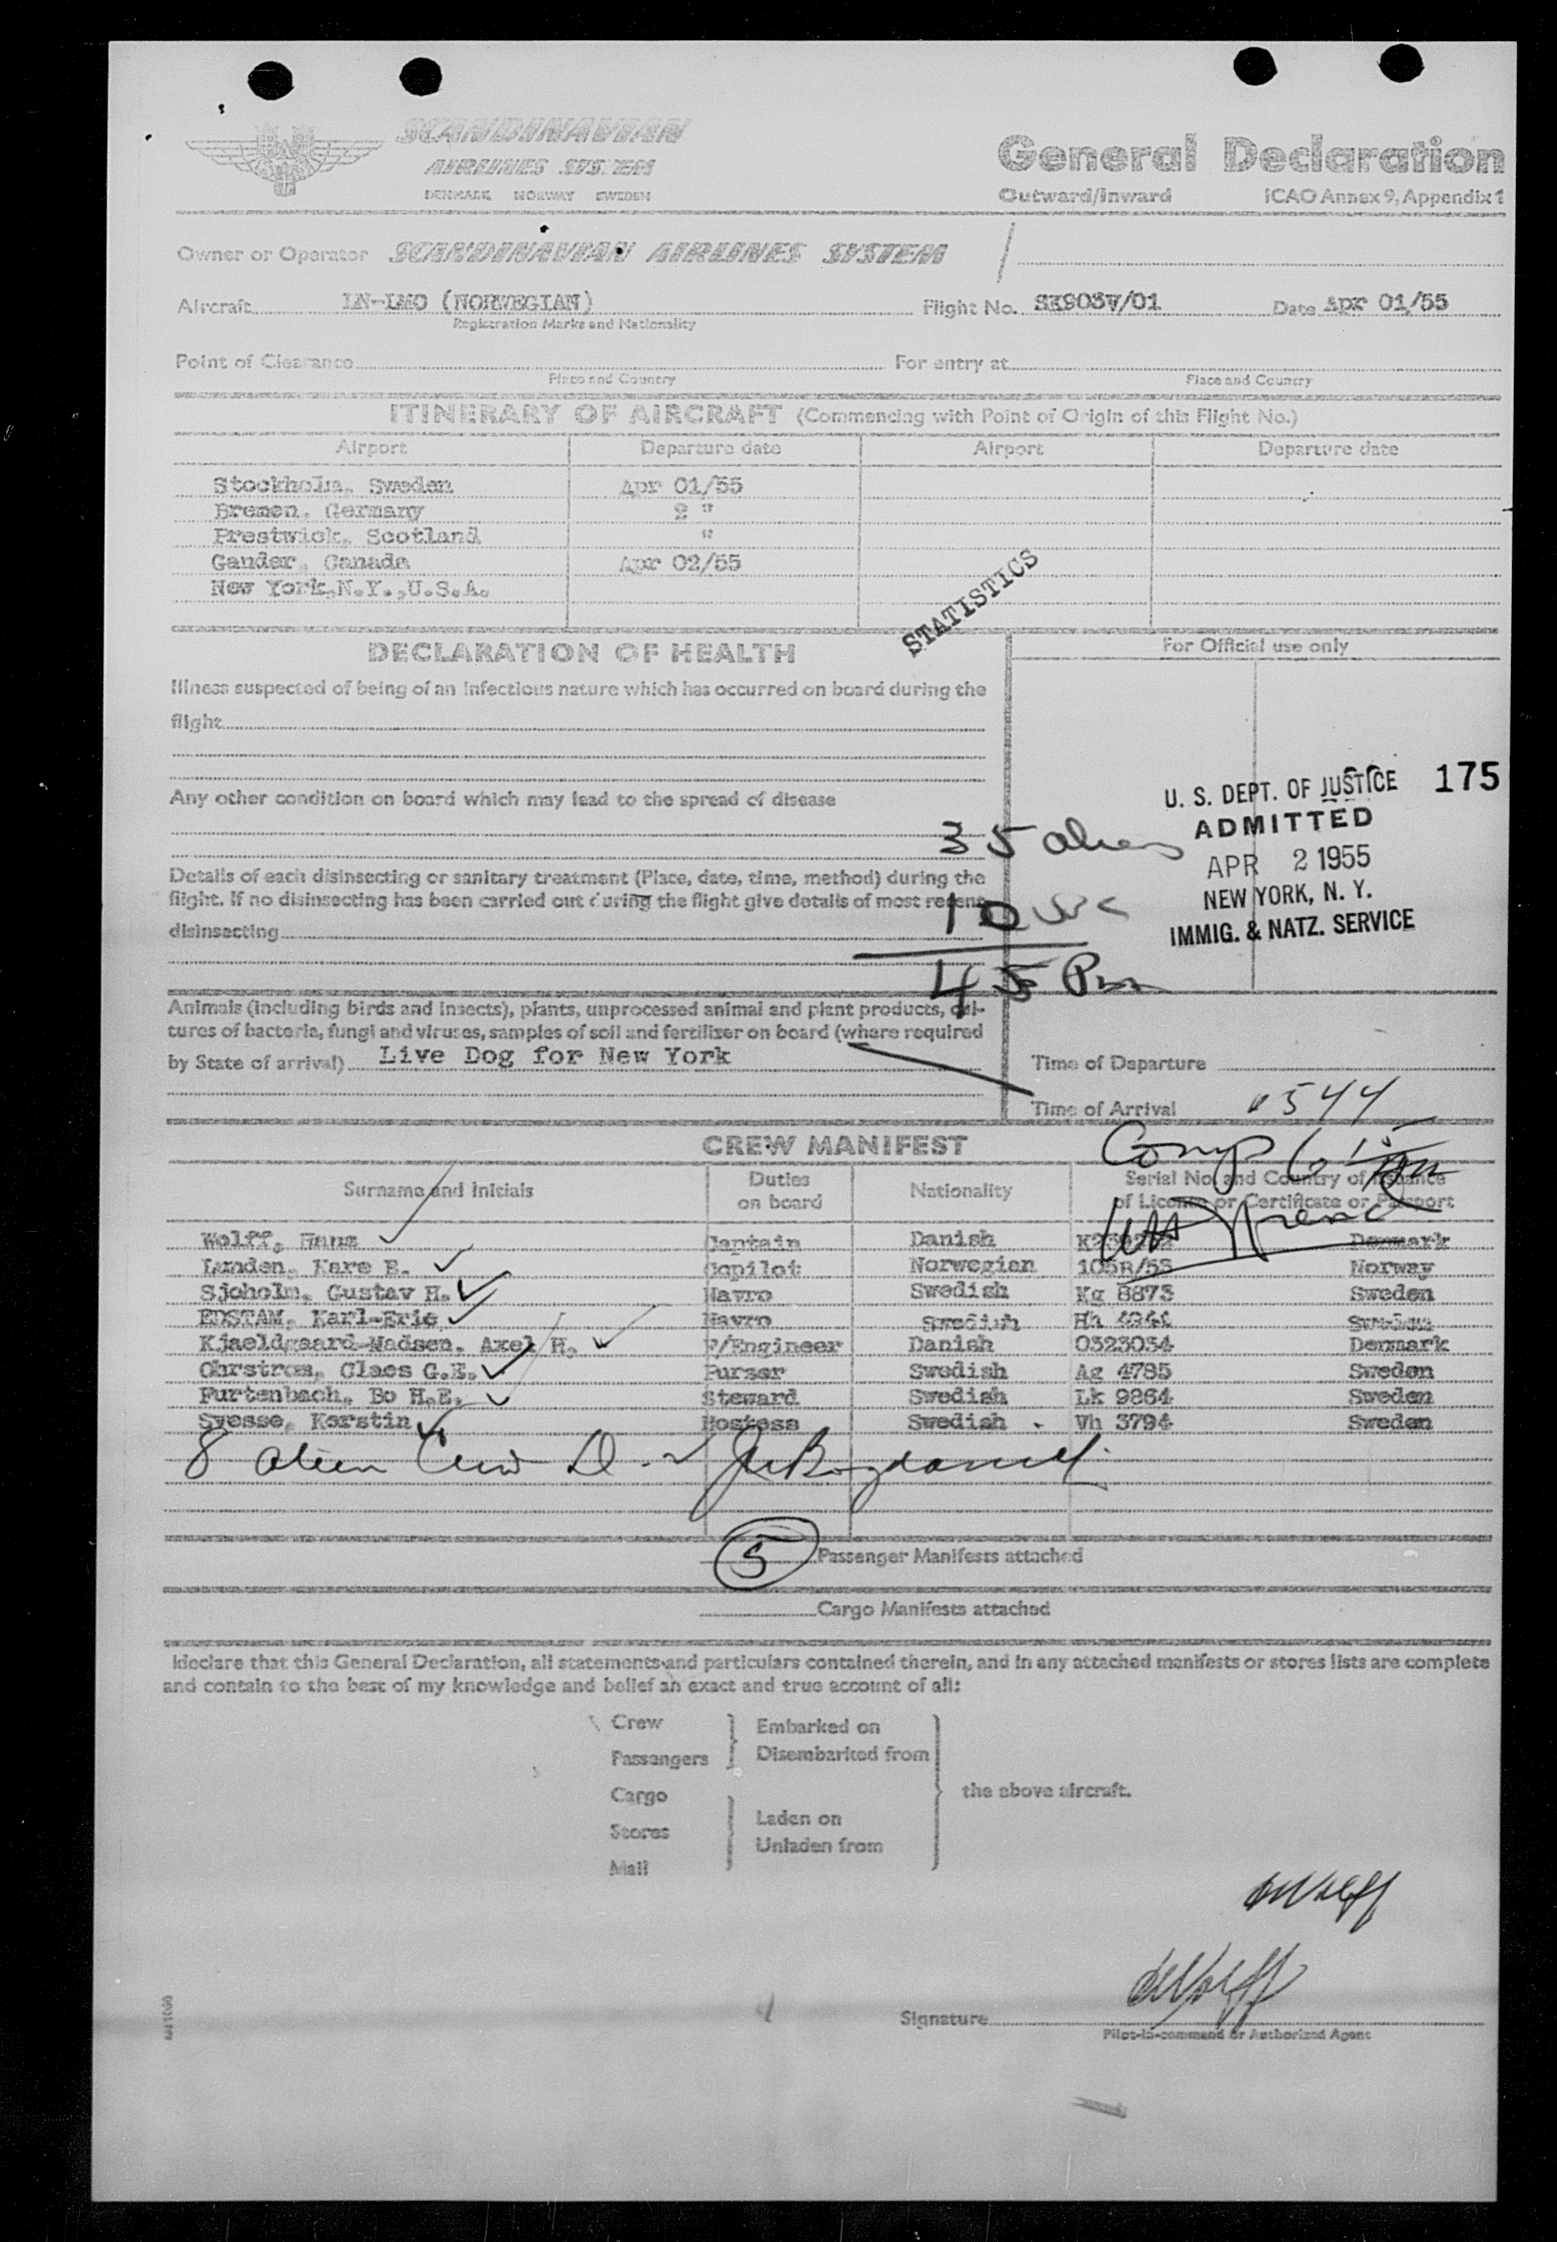 SCANDINAVIAN
AIRLINES SYSTEM
DENMARK NORWAY SWEDEN
General Declaration
Outward/Inward ICAO Annex 9, Appendix 1
Owner or Operator SCANDINAVIAN AIRLINES SYSTEM
Aircraft LN-LMO (NORWEGIAN) Flight No. Date Apr 01/55
Registration Marks and Nationality
Point of Clearance For entry at
Place and Country Place and Country
ITINERARY OF AIRCRAFT (Commencing with Point of Origin of this Flight No.)
Airport Departure date Airport Departure date
Stockholm, Sweden Apr 01/55
Bremen, Germany 2 "
Prestwick, Scotland "
Gander, Canada Apr 02/55
New York,N.Y.,U.S.A.
STATISTICS
DECLARATION OF HEALTH
For Official use only
Illness suspected of being of an infectious nature which has occurred on board during the
flight
Any other condition on board which may lead to the spread of disease
U. S. DEPT. OF JUSTICE 175
ADMITTED
APR 2 1955
NEW YORK, N. Y.
IMMIG. & NATZ. SERVICE
35 aliens
10 USC
45 Pax
Details of each disinsecting or sanitary treatment (Place, date, time, method) during the
flight. If no disinsecting has been carried out during the flight give details of most recent
disinsecting
Animals (including birds and insects), plants, unprocessed animal and plant products, cul-
tures of bacteria, fungi and viruses, samples of soil and fertilizer on board (where required
by State of arrival) Live Dog for New York
Time of Departure
Time of Arrival 0544
CREW MANIFEST
Comp
Surname and Initials Duties on board Nationality Serial No. and Country of Issuance of License or Certificate or Passport
Wolff, Hans Captain Danish Denmark
Lunden, Kare B. Copilot Norwegian 105B/53 Norway
Sjoholm, Gustav H. Navro Swedish Kg 8873 Sweden
EDSTAM, Karl-Eric Navro Swedish Hh Sweden
Kjaeldgaard-Madsen, Axel H. F/Engineer Danish 0323034 Denmark
Ohrstrom, Claes G.E. Purser Swedish Ag 4785 Sweden
Furtenbach, Bo H.E. Steward Swedish Lk 9864 Sweden
Svesse, Kerstin Hostess Swedish Vh 3794 Sweden
8 alien Crew D
5 Passenger Manifests attached
Cargo Manifests attached
I declare that this General Declaration, all statements and particulars contained therein, and in any attached manifests or stores lists are complete
and contain to the best of my knowledge and belief an exact and true account of all:
Crew Embarked on
Passengers Disembarked from
Cargo the above aircraft.
Stores Laden on
Mail Unladen from
Signature
Pilot-in-command or Authorized Agent